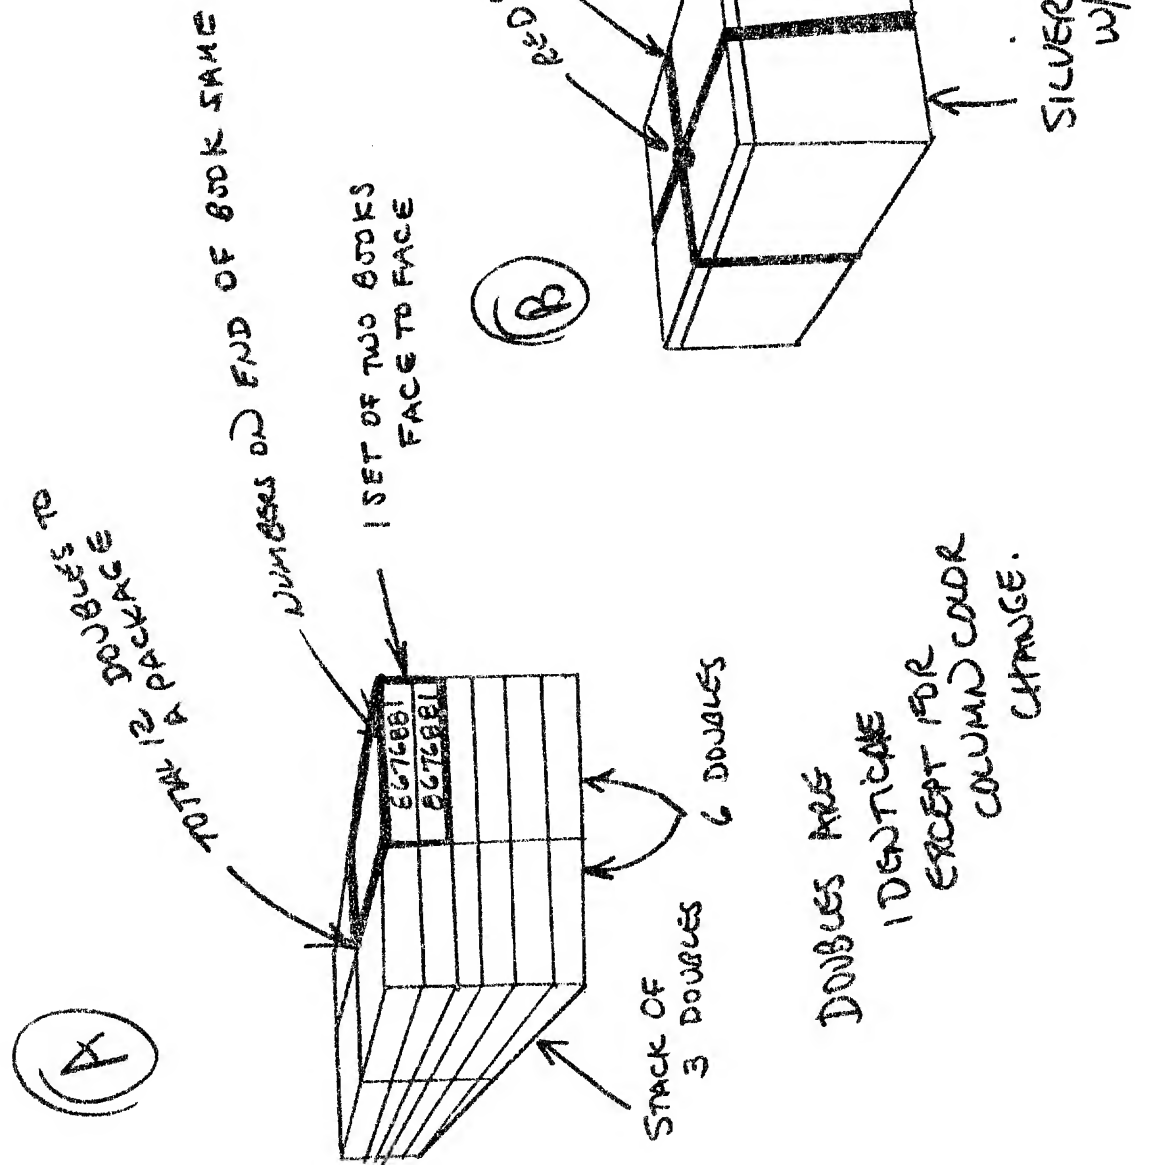 A
TOTAL 12 DOUBLES TO
A PACKAGE
NUMBERS ON END OF BOOK SAME
1 SET OF TWO BOOKS
FACE TO FACE
8676881
8676881
6 DOUBLES
STACK OF
3 DOUBLES
DOUBLES ARE
IDENTICAL
EXCEPT FOR
COLUMN COLOR
CHANGE.
B
RED
SILVER
W/